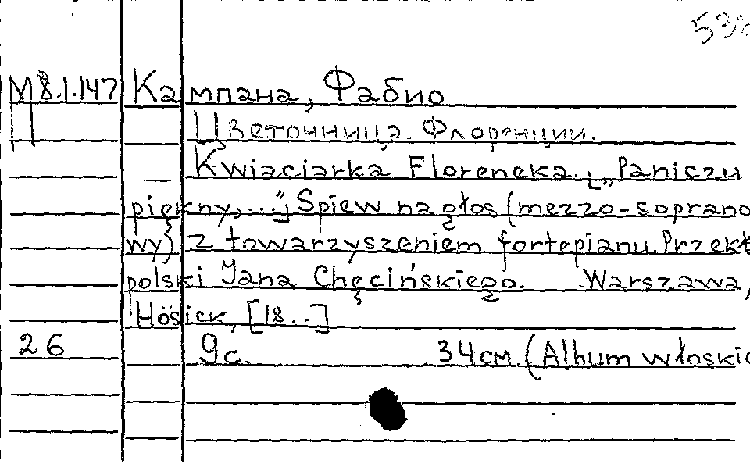 538
М 8.1.147 Кампана, Фабио
П Цветочница Флоренции.
Kwiaciarka Florencka. [„Paniczu
piękny,..."] Śpiew na głos (mezzo-soprano
wy) z towarzyszeniem fortepianu. Przekł
polski Jana Chęcińskiego. Warszawa,
Hösick, [18..]
26 9 с. 34 см. (Album włoskie